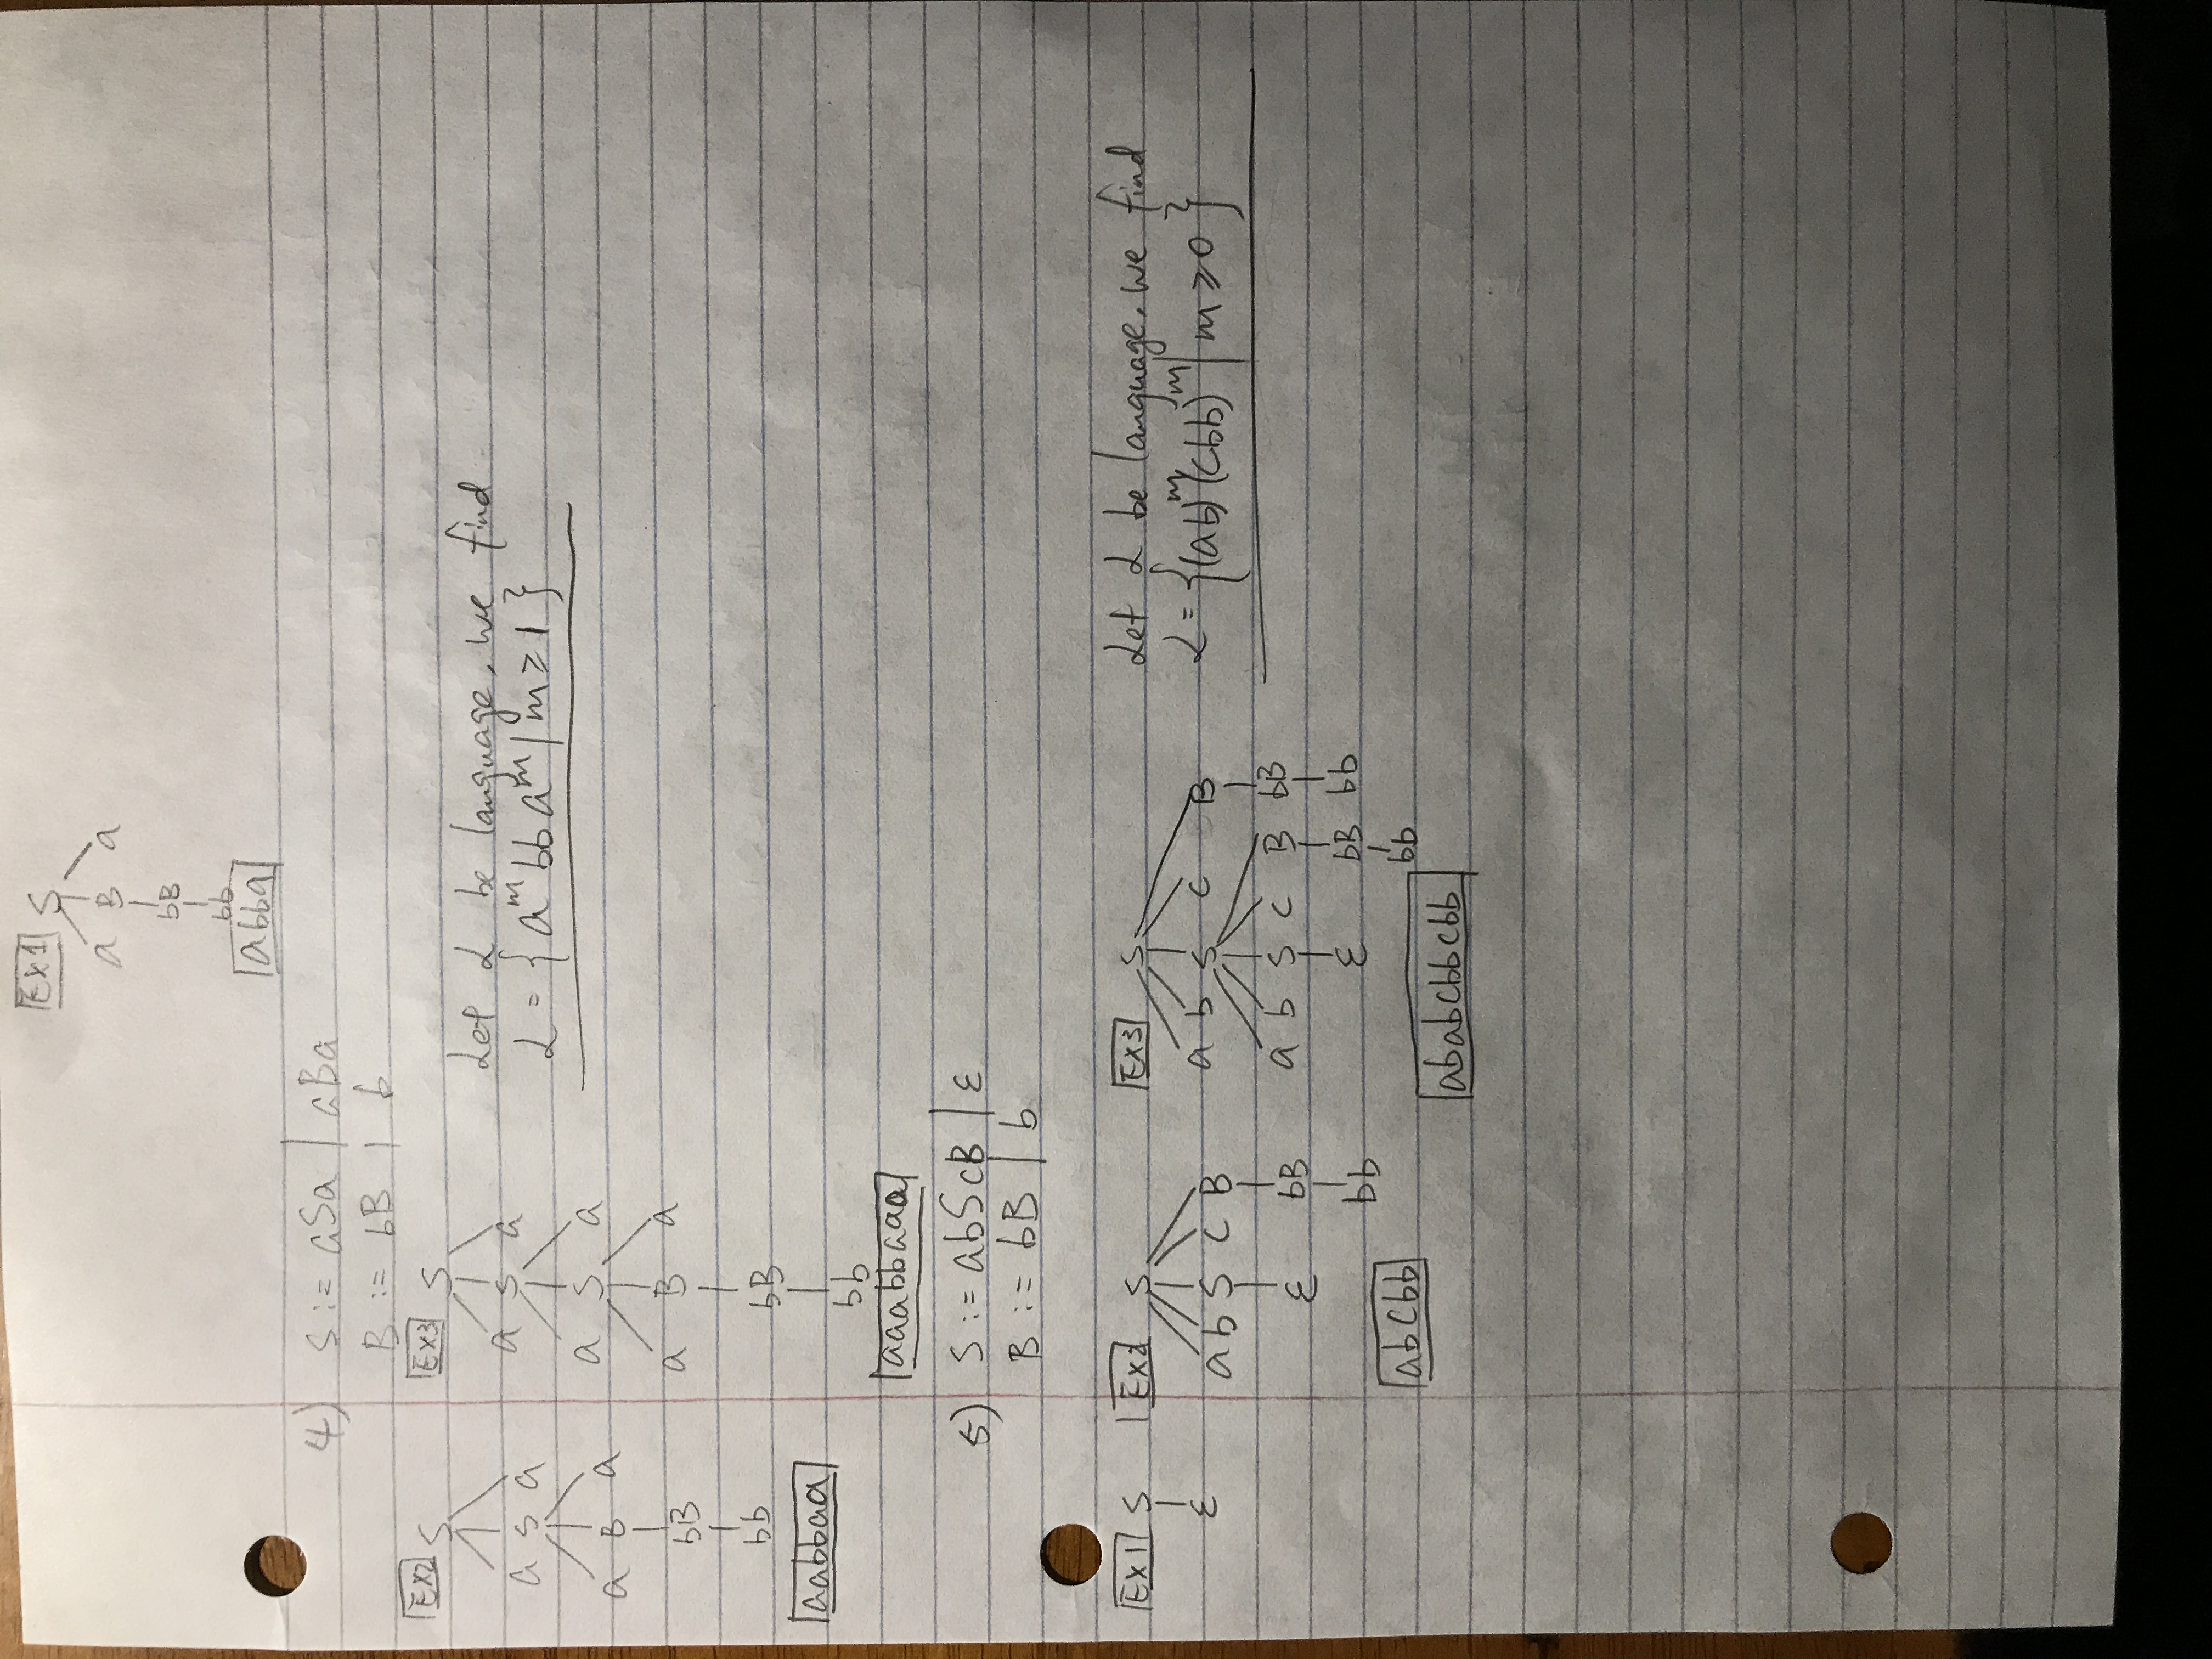 Ex1 S
a B a
bB
bb
abba
4) S := aSa | aBa
B := bB | b
Ex2 S
a S a
a B a
bB
bb
aabbaa
Ex3 S
a S a
a S a
a B a
bB
bb
aaabbaaa
Let L be language, we find
L = { a^m bb a^m | m ≥ 1 }
5) S := abScB | ε
B := bB | b
Ex1 S
ε
Ex2 S
a b S c B
ε bB
bb
abcbb
Ex3 S
a b S c B
a b S c B bB
ε bB bb
bb
ababcbbcbb
Let L be language, we find
L = { (ab)^m (cbb)^m | m ≥ 0 }